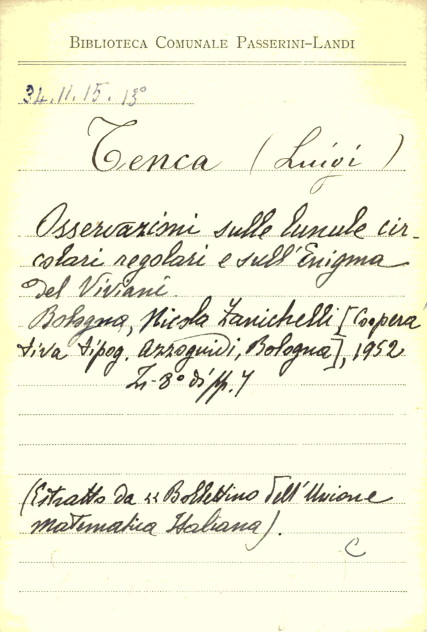 BIBLIOTECA COMUNALE PASSERINI-LANDI
34.11.15.13°
Tenca (Luigi)
Osservazioni sulle lunule cir-
colari regolari e sull'Enigma
del Viviani.
Bologna, Nicola Zanichelli [Coopera
tiva tipog. Azzoguidi, Bologna], 1952
8° di pp. 7
(Estratto da << Bollettino dell'Unione
matematica Italiana).
C